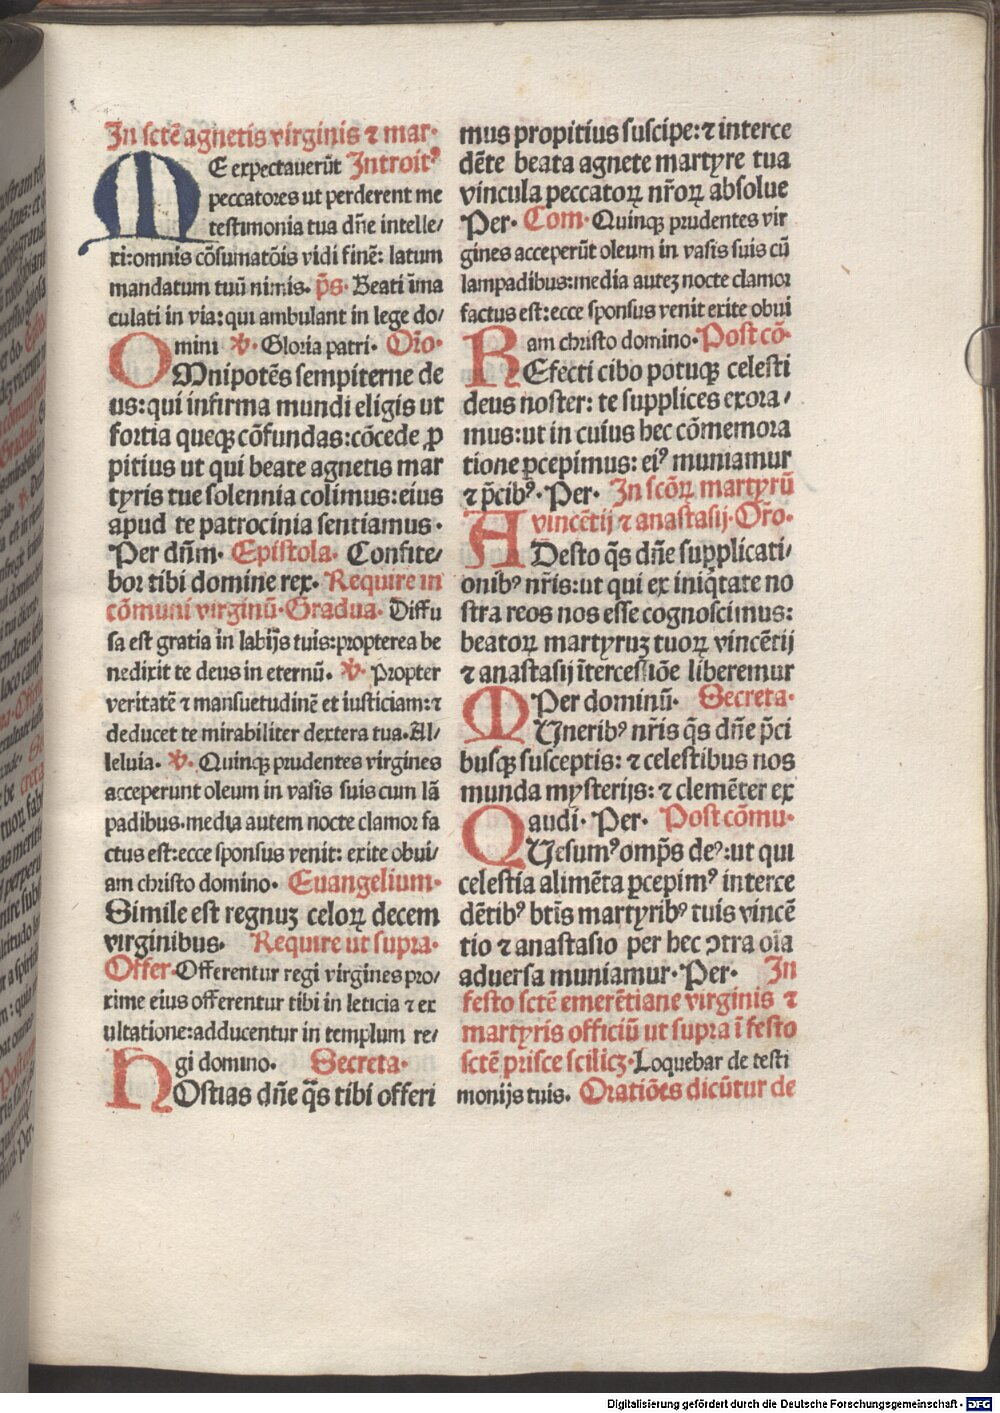 In sctē agnetis virginis ⁊ mar·
ME expectauerūt Introitꝰ
peccatores ut perderent me
testimonia tua dn̄e intelle/
xi:omnis cōsumatōis vidi finē: latum
mandatum tuū nimis. p̄s· Beati īma
culati in via: qui ambulant in lege do/
mini ℣· Gloria patri· Oro·
OMnipotēs sempiterne de
us: qui infirma mundi eligis ut
fortia queqꝫ cōfundas: cōcede ꝓ
pitius ut qui beate agnetis mar
tyris tue solennia colimus: eius
apud te patrocinia sentiamus·
Per dn̄m· Epistola· Confite/
bor tibi domine rex· Require in
cōmuni virginū· Gradua· Diffu
sa est gratia in labijs tuis: propterea be
nedixit te deus in eternū· ℣· Propter
veritatē ⁊ mansuetudinē et iusticiam: ⁊
deducet te mirabiliter dextera tua· Al/
leluia· ℣· Quinqꝫ prudentes virgines
acceperunt oleum in vasis suis cum lā
padibus· media autem nocte clamor fa
ctus est: ecce sponsus venit: exite obui/
am christo domino· Euangelium·
Simile est regnuꝫ celoꝝ decem
virginibus· Require ut supra·
Offer· Offerentur regi virgines pro/
xime eius offerentur tibi in leticia ⁊ ex
ultatione: adducentur in templum re/
gi domino· Secreta·
HOstias dn̄e q̄s tibi offeri
mus propitius suscipe: ⁊ interce
dēte beata agnete martyre tua
vincula peccatoꝝ nr̄oꝝ absolue
Per· Com· Quinqꝫ prudentes vir
gines acceperūt oleum in vasis suis cū
lampadibus: media auteꝫ nocte clamor
factus est: ecce sponsus venit exite obui
am christo domino· Post cō·
REfecti cibo potuqꝫ celesti
deus noster: te supplices exora/
mus: ut in cuius hec cōmemora
tione ꝑcepimus: eiꝰ muniamur
⁊ p̄cibꝰ· Per· In scōꝝ martyrū
vincētij ⁊ anastasij· Or̄o·
ADesto q̄s dn̄e supplicati/
onibꝰ nr̄is: ut qui ex iniq̇tate no
stra reos nos esse cognoscimus:
beatoꝝ martyruꝫ tuoꝝ vincētij
⁊ anastasij ītercessiōe liberemur
Per dominū· Secreta·
MUneribꝰ nr̄is q̄s dn̄e p̄ci
busqꝫ susceptis: ⁊ celestibus nos
munda mysterijs: ⁊ clemēter ex
audi· Per· Post cōmu·
QUesumꝰ omp̄s deꝰ: ut qui
celestia alimēta ꝑcepimꝰ interce
dētibꝰ btīs martyribꝰ tuis vincē
tio ⁊ anastasio per hec ꝯtra oīa
aduersa muniamur· Per· In
festo sctē emerētiane virginis ⁊
martyris officiū ut supra ī festo
sctē prisce scilicꝫ· Loquebar de testi
monijs tuis· Oratiōes dicūtur de
Digitalisierung gefördert durch die Deutsche Forschungsgemeinschaft - DFG